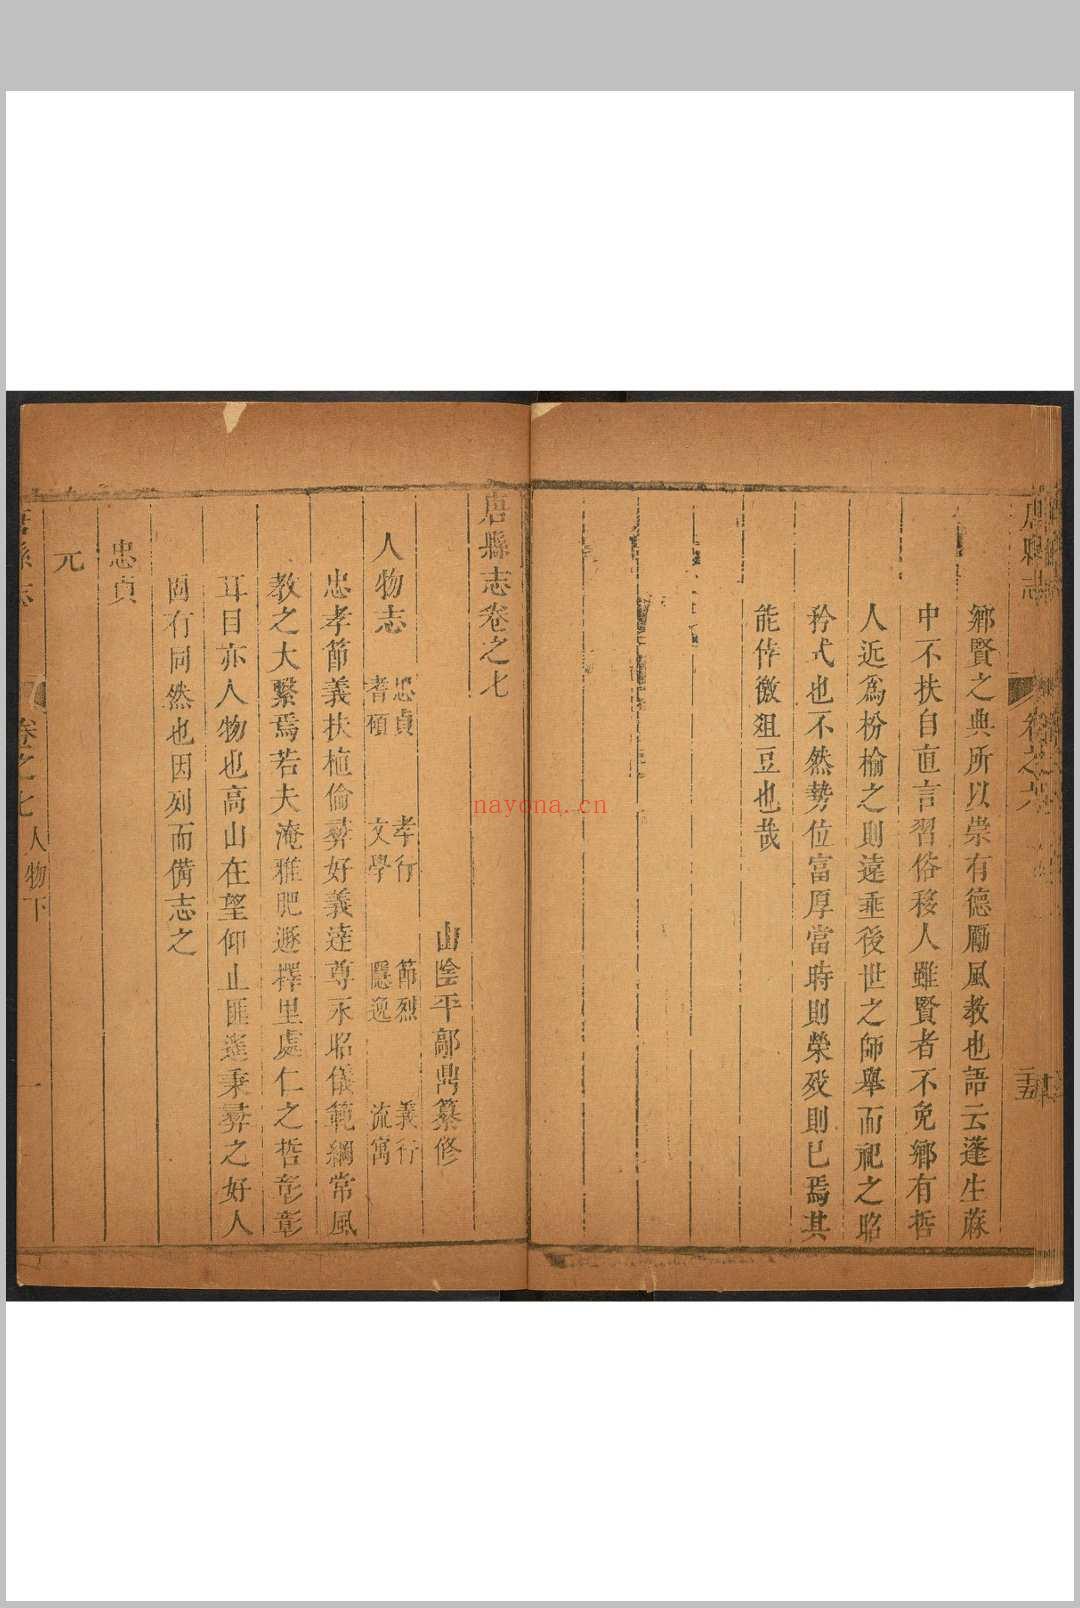 唐縣志
卷之六
鄉賢之典所以崇有德勵風教也語云蓬生蔴
中不扶自直言習俗移人雖賢者不免鄉有哲
人近爲枌榆之則遠垂後世之師舉而祀之昭
矜式也不然勢位富厚當時則榮歿則已焉其
能倖徼俎豆也哉
唐縣志卷之七
山陰平鄗鼎纂修
人物志
忠貞 孝行 節烈 義行
耆碩 文學 隱逸 流寓
忠孝節義扶植倫彛好義達尊永昭儀範綱常風
教之大繫焉若夫淹雅肥遯擇里處仁之哲彰彰
耳目亦人物也高山在望仰止匪遙秉彛之好人
固有同然也因列而備志之
忠貞
元
唐縣志
卷之七
人物下
一
nayona.cn